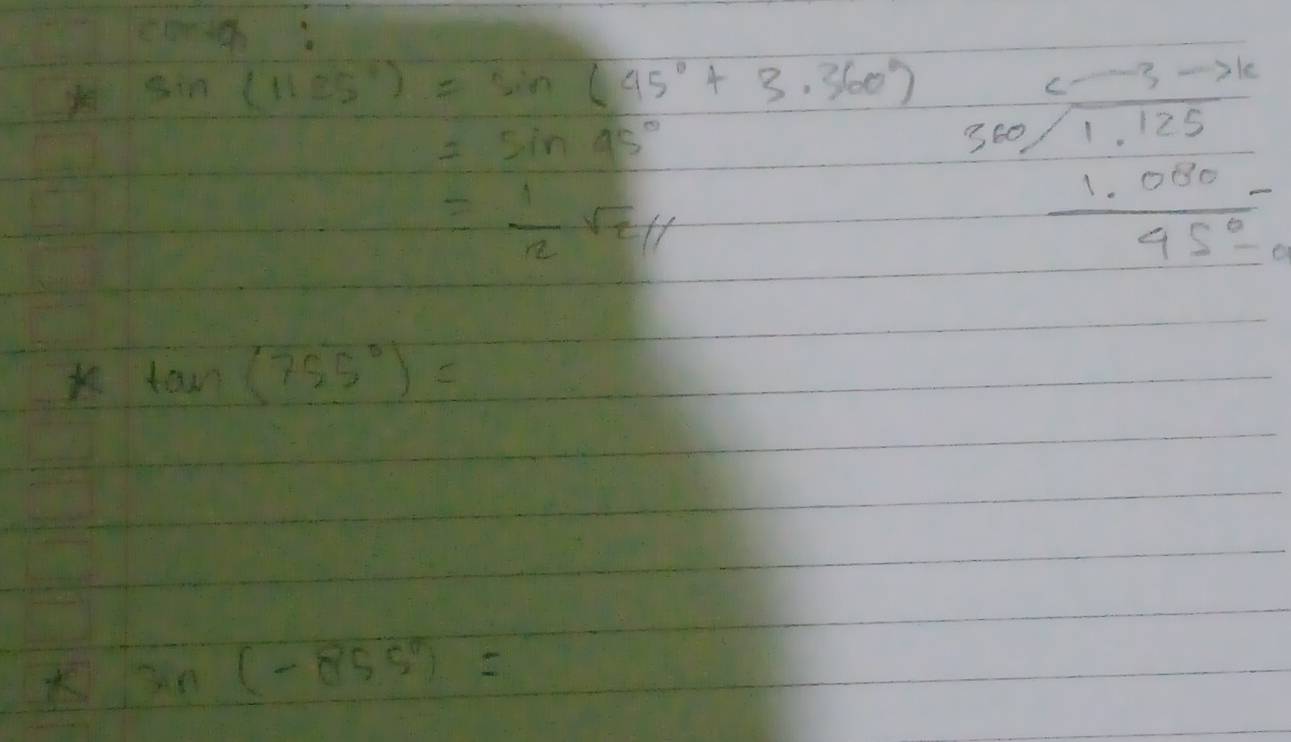 * sin (1125°) = sin (45° + 3.360°)
= sin 45°
= 1/2 √2//
← 3 → k
360/1.125
1.080 -
45°
* tan (755°) =
* sin (-855°) =